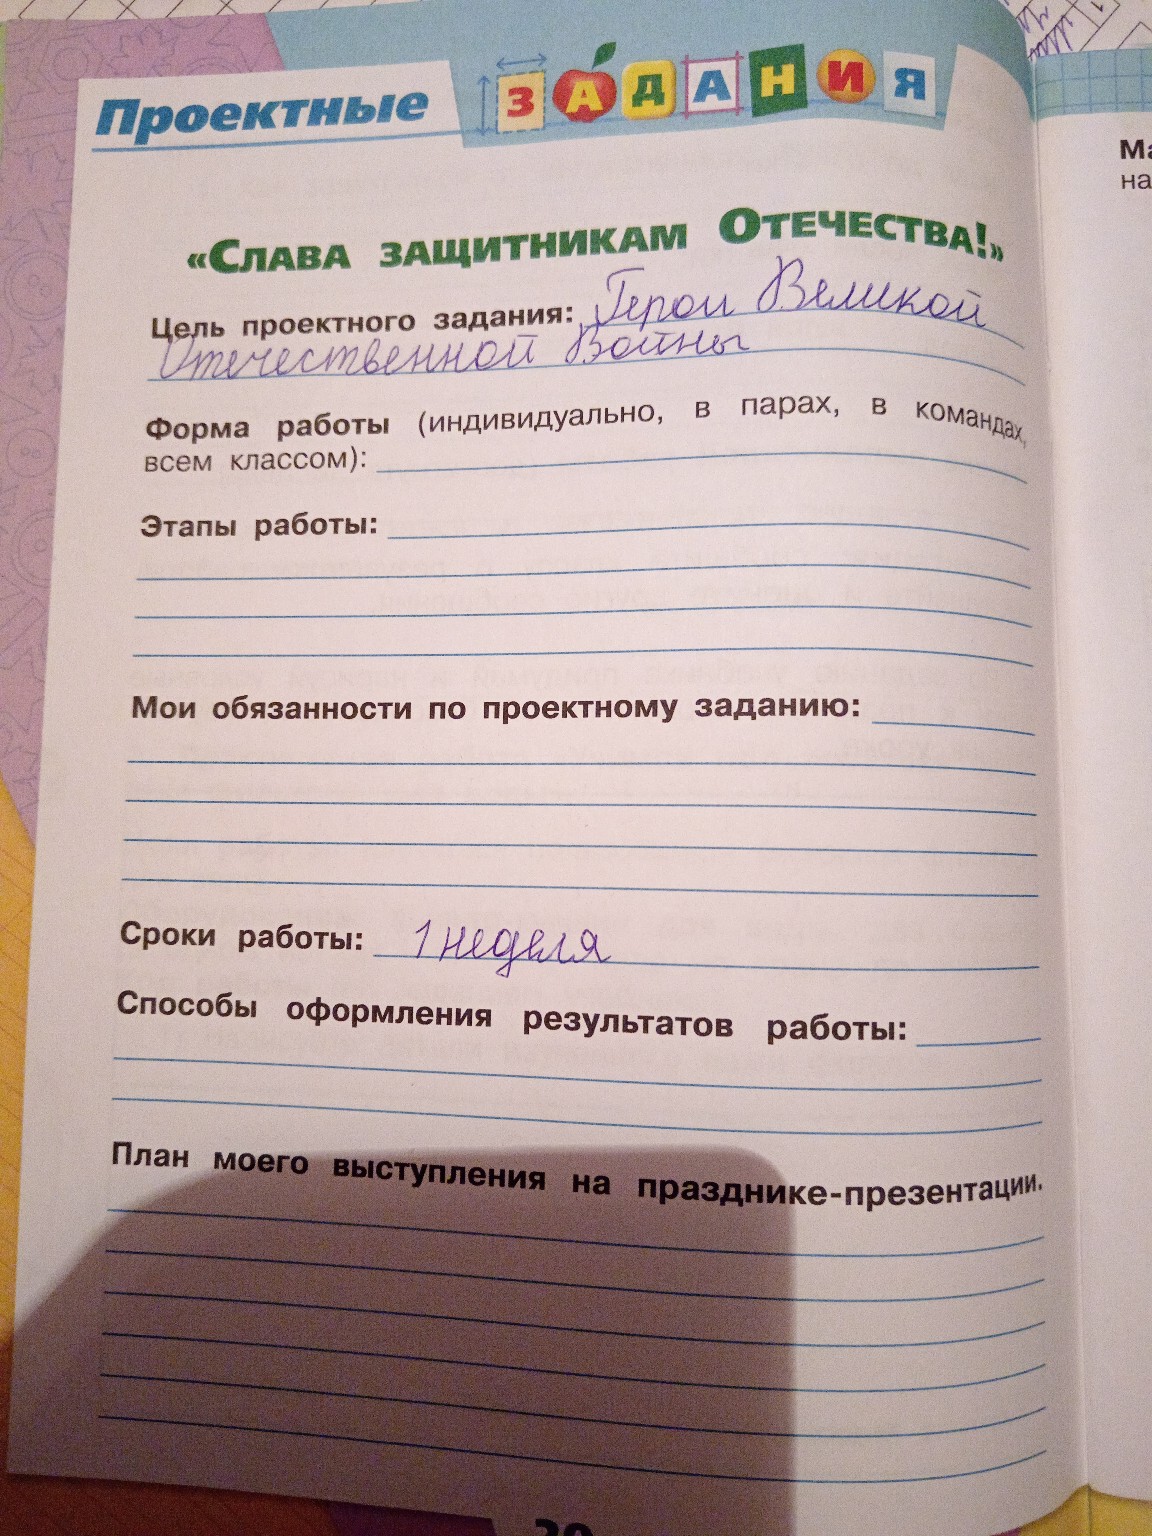 Проектные ЗАДАНИЯ
Ма
на
«Слава защитникам Отечества!»
Цель проектного задания: Герои Великой
Отечественной Войны
Форма работы (индивидуально, в парах, в командах,
всем классом):
Этапы работы:
Мои обязанности по проектному заданию:
Сроки работы: 1 неделя
Способы оформления результатов работы:
План моего выступления на празднике-презентации.